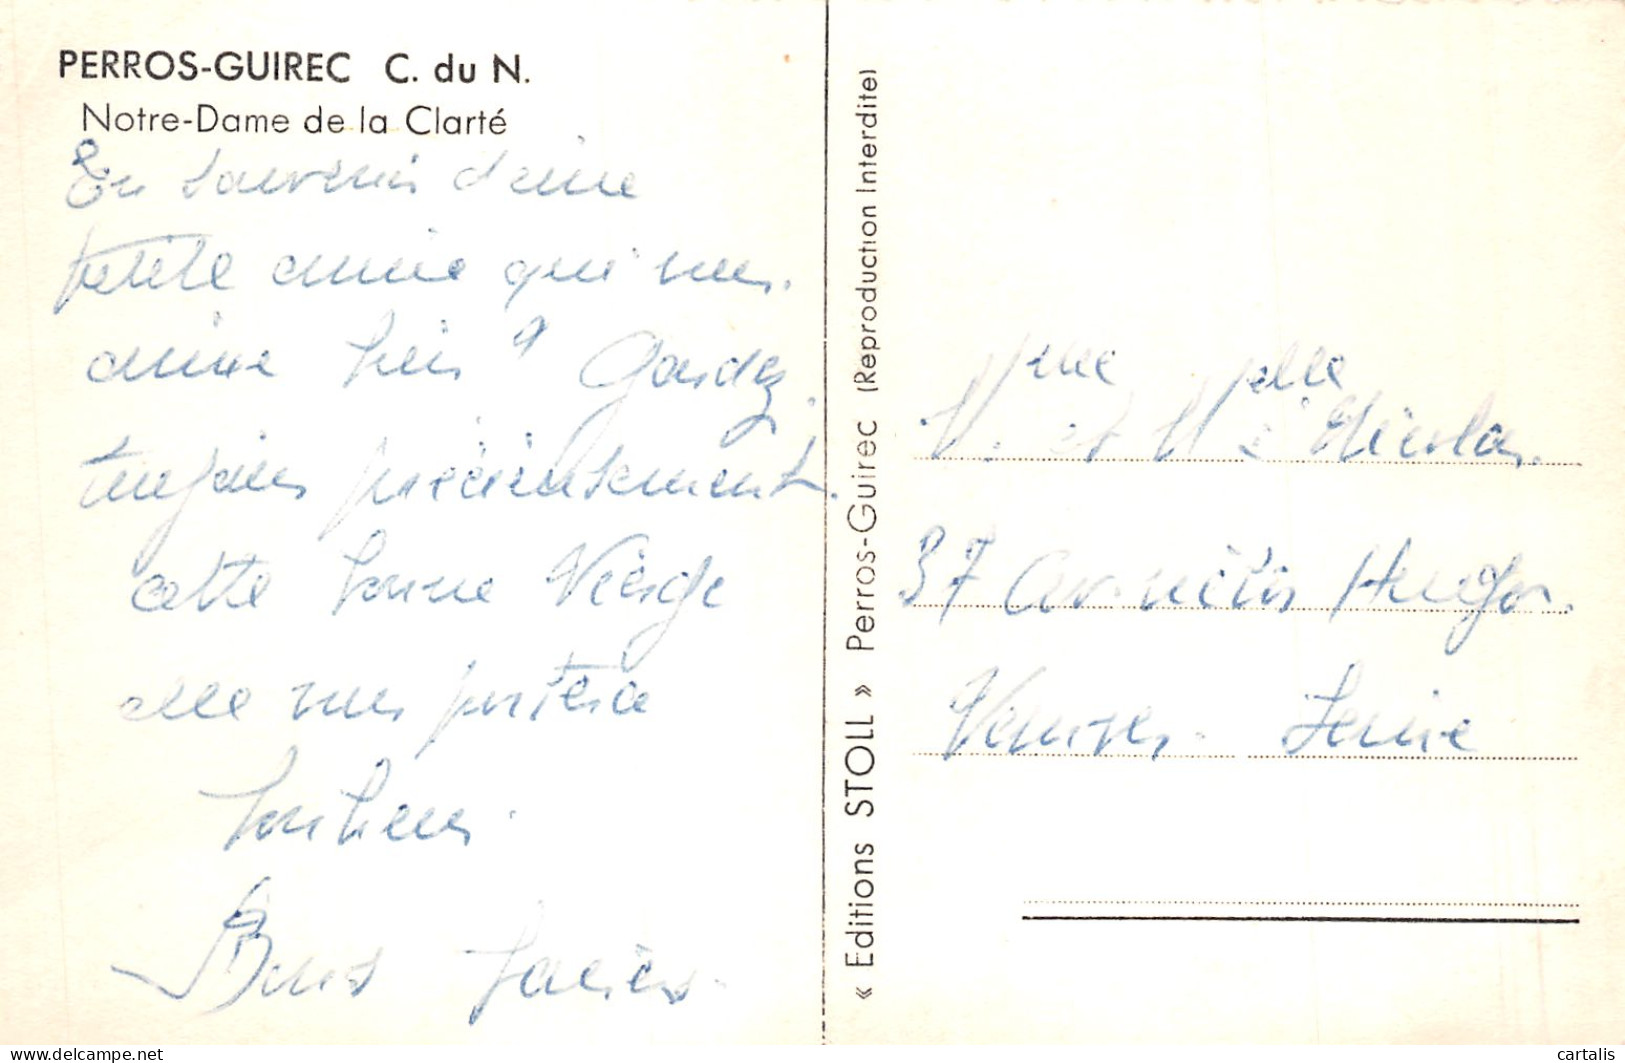 PERROS-GUIREC C. du N.
Notre-Dame de la Clarté
En souvenir d'une
petite amie qui vous
aime bien Gardez
toujours précieusement
cette bonne Vierge
elle vous portera
bonheur.
Bons
« Editions STOLL » Perros-Guirec (Reproduction Interdite)
Mme et Melle Nicolas.
37 av. Victor Hugo.
Vanves. Seine
cartalis